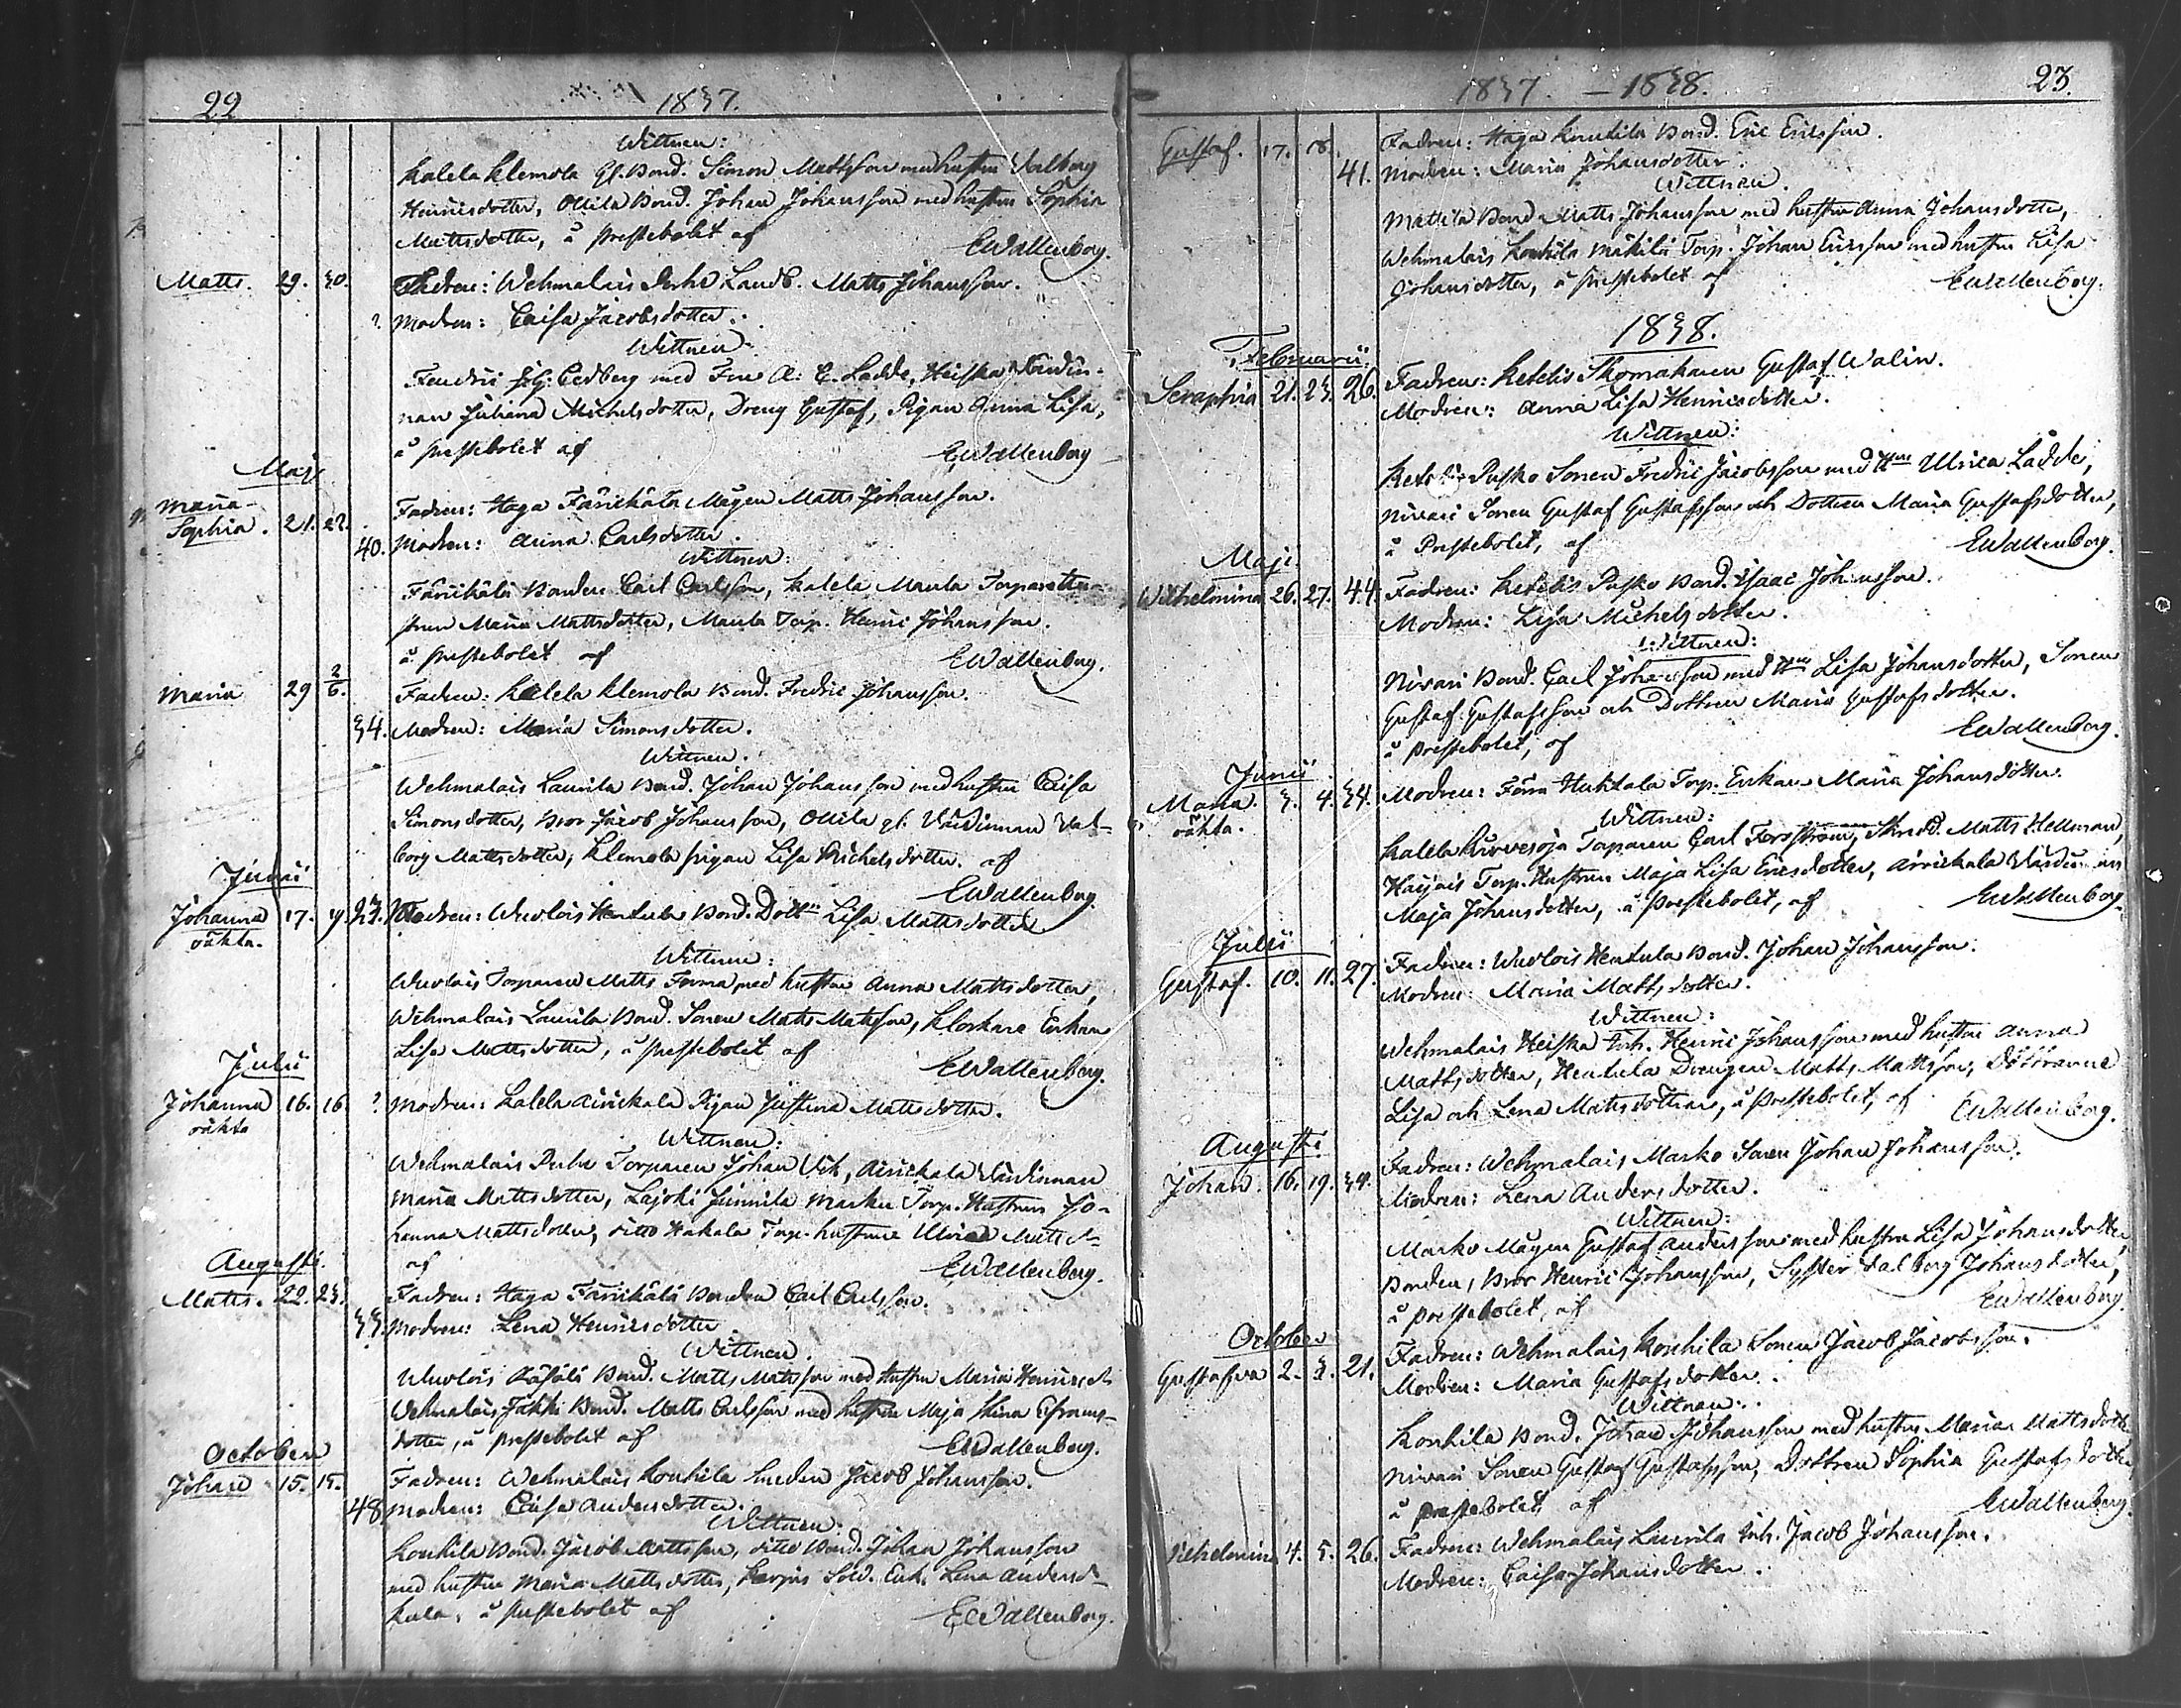 22
1837.
Wittnen:
Kalela Klemola Gl. Bond. Simon Mattsson med hustru Valborg
Henricsdotter, Ollila Bond. Johan Johansson med hustru Sophia
Mattsdotter, å prestebolet af
EWallenborg.
Matts. 29. 30. Fadren: Wehmalais Landb. Matts Johansson.
? Modren: Caisa Jacobsdotter.
Wittnen
Cedberg med Fru A: E. Ladde, Heiska Värdin-
nan Juliana Michelsdotter, Dreng Gustaf, Pigan Anna Lisa,
å prestebolet af
EWallenborg
Maji
Maria
Sophia. 21. 22. Fadren: Haga Färrikälä Mågen Matts Johansson.
40. Modren: Anna Carlsdotter.
Wittnen:
Färrikälä Bonden Carl Carlsson, Kalela Maula
Maria Mattsdotter, Maula Torp. Henric Johansson.
å prestebolet af
EWallenborg.
Maria 29 2/6. Fadren: Kalela Klemola Bond. Fredric Johansson.
34. Modren: Maria Simonsdotter.
Wittnen.
Wehmalais Laurila Bond. Johan Johansson med hustru Caisa
Simonsdotter, Bror Jacob Johansson, Ollila gl. Värdinnan Val-
borg Mattsdotter, Klemola pigan Lisa Michelsdotter. af
EWallenborg.
Junii
Johanna 17. 19. 23. Modren: Wuolois Hentula Bond. Dott. Lisa Mattsdotter.
oäkta.
Wittnen:
Wuolois Torparen Matts med hustru Anna Mattsdotter,
Wehmalais Laurila Bond. Sonen Matts Mattsson, Klockare Enkan
Lisa Mattsdotter, å prestebolet af
EWallenborg.
Julii
Johanna 16. 16. ? Modren: Kalela Airickala Pigan Justina Mattsdotter.
oäkta
Wittnen:
Wehmalais Torparen Johan Vik, Airickala Värdinnan
Maria Mattsdotter, Lajoki Junnila Marku Torp. Hustrun Jo-
hanna Mattsdotter, ditto Hakala Torp. hustrun Ulrica Matts d-
af
EWallenborg.
Augusti.
Matts. 22. 23. Fadren: Haga Färrikälä Bonden Carl Carlsson.
33. Modren: Lena Henricsdotter
Wittnen.
Wuolois Räfälä Bond. Matts Mattsson med hustru Maria Henricsd
Wehmalais Jakki Bond. Matts Carlsson med hustru Maja Stina
dotter, å prestebolet af
EWallenborg.
October
Johan 15. 15. Fadren: Wehmalais Kouhila Jacob Johansson.
48. Modren: Caisa Andersdotter.
Wittnen:
Kouhila Bond. Jacob Mattsson, ditto Bond. Johan Johansson
med hustru Maria Mattsdotter, Sold. Enk. Lena Andersd-
å prestebolet af
EWallenborg.
1837. - 1838.
23.
Gustaf. 17. 18. Fadren: Haga Knutila Bond. Eric Ericsson.
41. Modren: Maria Johansdotter.
Wittnen.
Mattila Bond. Matts Johansson med hustru Anna Johansdotter,
Wehmalais Kouhila Mäkilä Torp. Johan Ericsson med hustru Lisa
Johansdotter, å prestebolet af
EWallenborg.
1838.
Februarii.
Seraphia 21. 23. 26. Fadren: Ketelis Skomakaren Gustaf Walin.
Modren: Anna Lisa Henricsdotter.
Wittnen:
Pusko Sonen Fredric Jacobsson med Hru Ulrica Ladde,
Nivari Sonen Gustaf Gustafsson och Dottren Maria Gustafsdotter,
å Prestebolet, af
EWallenborg.
Maji
Wilhelmina 26. 27. 44. Fadren: Ketelis Pusko Bond. Isaac Johansson.
Modren: Lisa Michelsdotter.
Wittnen:
Nivari Bond. Carl Johansson med Hru Lisa Johansdotter, Sonen
Gustaf Gustafsson och Dottren Maria Gustafsdotter.
å prestebolet, af
EWallenborg.
Junii
Maria. 3. 4. 34. Modren: Huhtala Torp. Enkan Maria Johansdotter.
oäkta.
Wittnen:
Kalela Kurvesoja Torparen Carl Forsström, Skredd. Matts Hellman,
Torp. Hustrun Maja Lisa Ericsdotter, Airickala Värdinnan
Maja Johansdotter, å prestebolet, af
EWallenborg.
Julii
Gustaf. 10. 11. 27. Fadren: Wuolois Hentula Bond. Johan Johansson.
Modren: Maria Mattsdotter.
Wittnen:
Wehmalais Heiska Inh. Henric Johansson med hustru Anna
Mattsdotter, Hentula Drengen Matts Mattsson, Döttrarne
Lisa och Lena Mattsdöttrar, å prestebolet, af
EWallenborg.
Augusti
Johan. 16. 19. 39. Fadren: Wehmalais Marko Sonen Johan Johansson.
Modren: Lena Andersdotter.
Wittnen:
Marko Mågen Gustaf Andersson med hustru Lisa Johansdotter,
Bonden, Bror Henric Johansson, Syster Valborg Johansdotter,
å prestebolet, af
EWallenborg.
October
Gustafva 2. 3. 21. Fadren: Wehmalais Kouhila Sonen Jacob Jacobsson.
Modren: Maria Gustafsdotter.
Wittnen:
Kouhila Bond. Johan Johansson med hustru Maria Mattsdotter
Nivari Sonen Gustaf Gustafsson, Dottren Sophia Gustafsdotter
å prestebolet af
EWallenborg.
Vilhelmina 4. 5. 26. Fadren: Wehmalais Laurila Inh. Jacob Johansson.
Modren: Caisa Johansdotter.